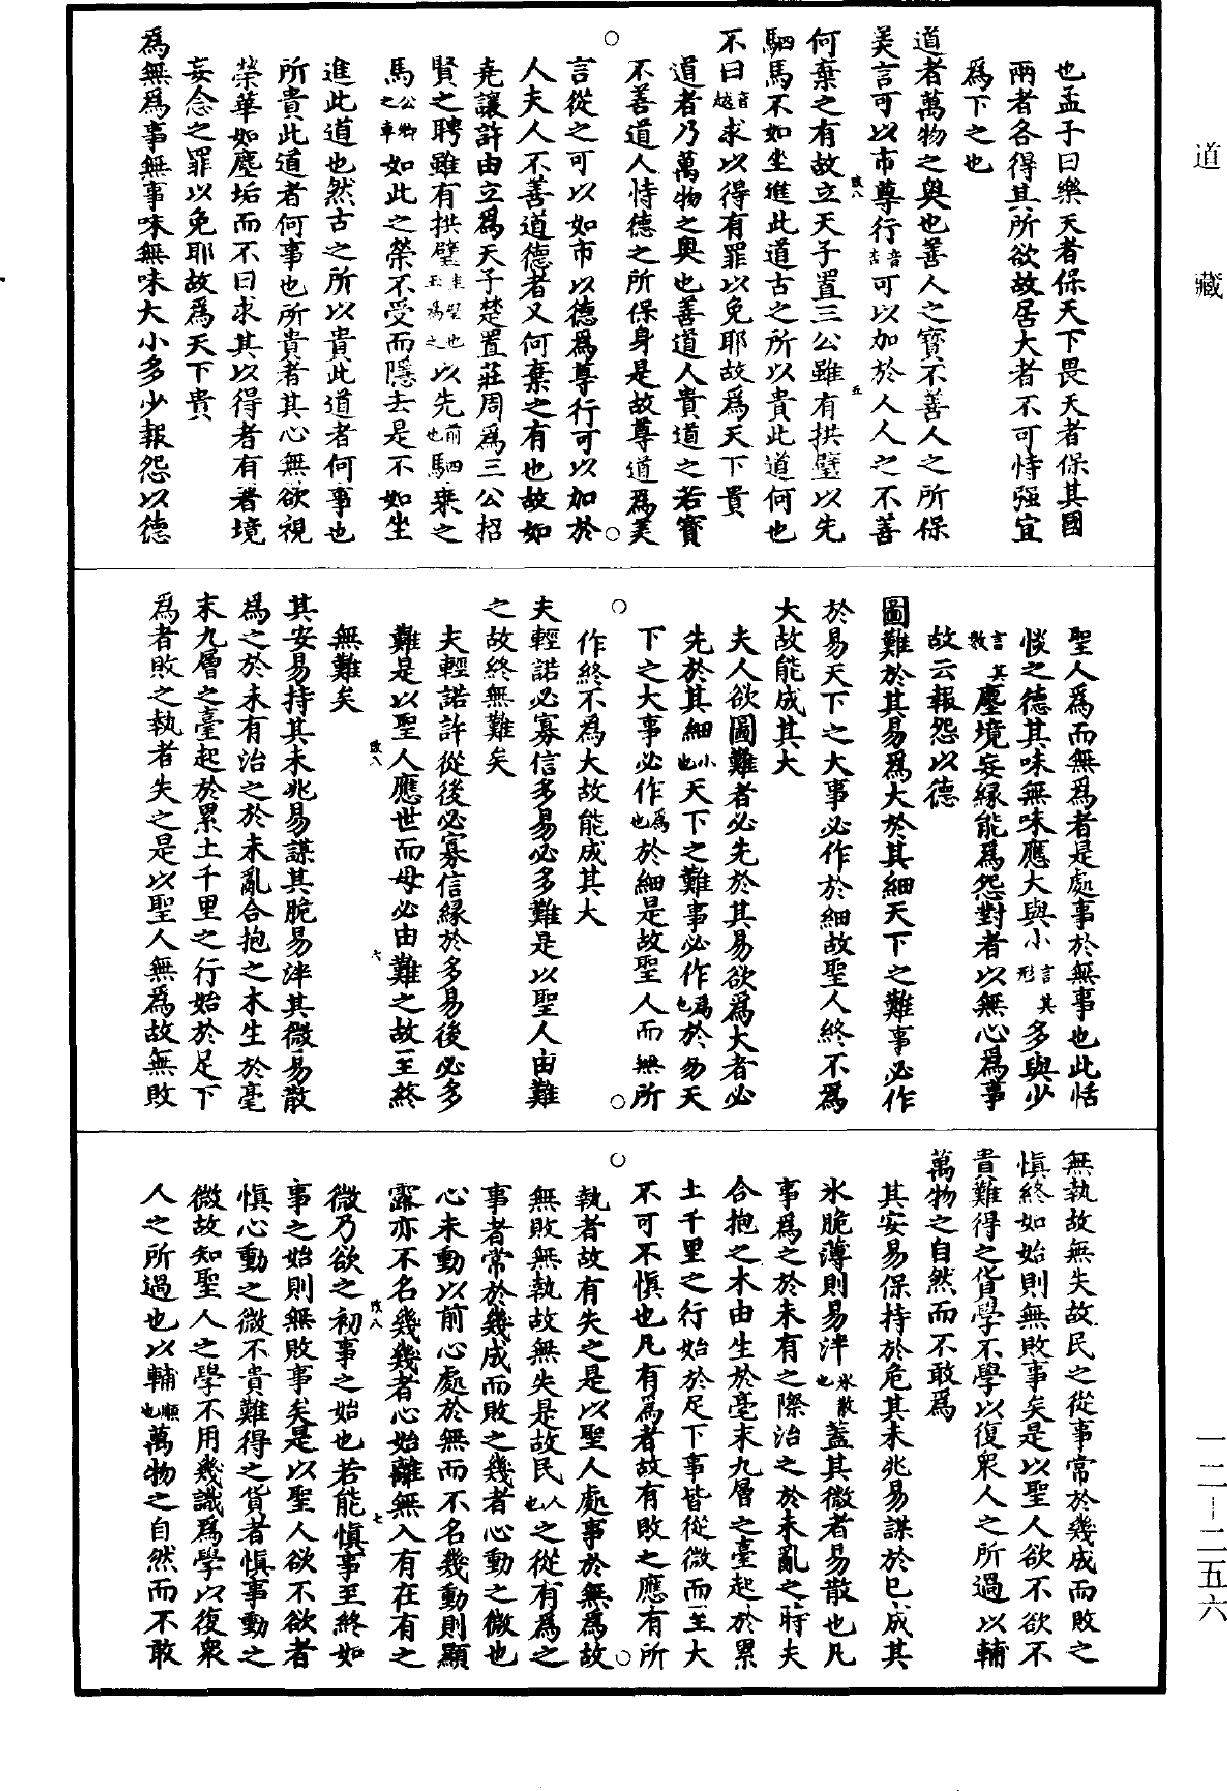 道藏
也孟子曰樂天者保天下畏天者保其國
兩者各得其所欲故居大者不可恃强宜
爲下之也
道者萬物之奥也善人之寶不善人之所保
美言可以市尊行音去可以加於人人之不善
何棄之有故立天子置三公雖有拱璧以先
駟馬不如坐進此道古之所以貴此道何也
不曰音越求以得有罪以免耶故爲天下貴
道者乃萬物之奥也善道人貴道之若寶
不善道人恃德之所保身是故尊道爲美
言從之可以如市以德爲尊行可以加於
人夫人不善道德者又何棄之有也故如
堯讓許由立爲天子楚置莊周爲三公招
賢之聘雖有拱璧圭璧也玉爲之以先前也駟乘之
馬公卿之車如此之榮不受而隱去是不如坐
進此道也然古之所以貴此道者何事也
所貴此道者何事也所貴者其心無欲視
榮華如塵垢而不曰求其以得者有著境
妄念之罪以免耶故爲天下貴
爲無爲事無事味無味大小多少報怨以德
聖人爲而無爲者是處事於無事也此恬
惔之德其味無味應大與小言其形多與少
言其數塵境妄緣能爲怨對者以無心爲事
故云報怨以德
圖難於其易爲大於其細天下之難事必作
於易天下之大事必作於細故聖人終不爲
大故能成其大
夫人欲圖難者必先於其易欲爲大者必
先於其細小也天下之難事必作爲也於易天
下之大事必作爲也於細是故聖人而無所
作終不爲大故能成其大
夫輕諾必寡信多易必多難是以聖人由難
之故終無難矣
夫輕諾許從後必寡信緣於多易後必多
難是以聖人應世而毋必由難之故至終
無難矣
其安易持其未兆易謀其脆易泮其微易散
爲之於未有治之於未亂合抱之木生於毫
末九層之臺起於累土千里之行始於足下
爲者敗之執者失之是以聖人無爲故無敗
無執故無失故民之從事常於幾成而敗之
慎終如始則無敗事矣是以聖人欲不欲不
貴難得之貨學不學以復衆人之所過以輔
萬物之自然而不敢爲
其安易保持於危其未兆易謀於已成其
氷脆薄則易泮氷散也蓋其微者易散也凡
事爲之於未有之際治之於未亂之時夫
合抱之木由生於毫末九層之臺起於累
土千里之行始於足下事皆從微而至大
不可不慎也凡有爲者故有敗之應有所
執者故有失之是以聖人處事於無爲故
無敗無執故無失是故民人也之從有爲之
事者常於幾成而敗之幾者心動之微也
心未動以前心處於無而不名幾動則顯
露亦不名幾幾者心始離無入有在有之
微乃欲之初事之始也若能慎事至終如
事之始則無敗事矣是以聖人欲不欲者
慎心動之微不貴難得之貨者慎事動之
微故知聖人之學不用幾識爲學以復衆
人之所過也以輔順也萬物之自然而不敢
一二—二五六